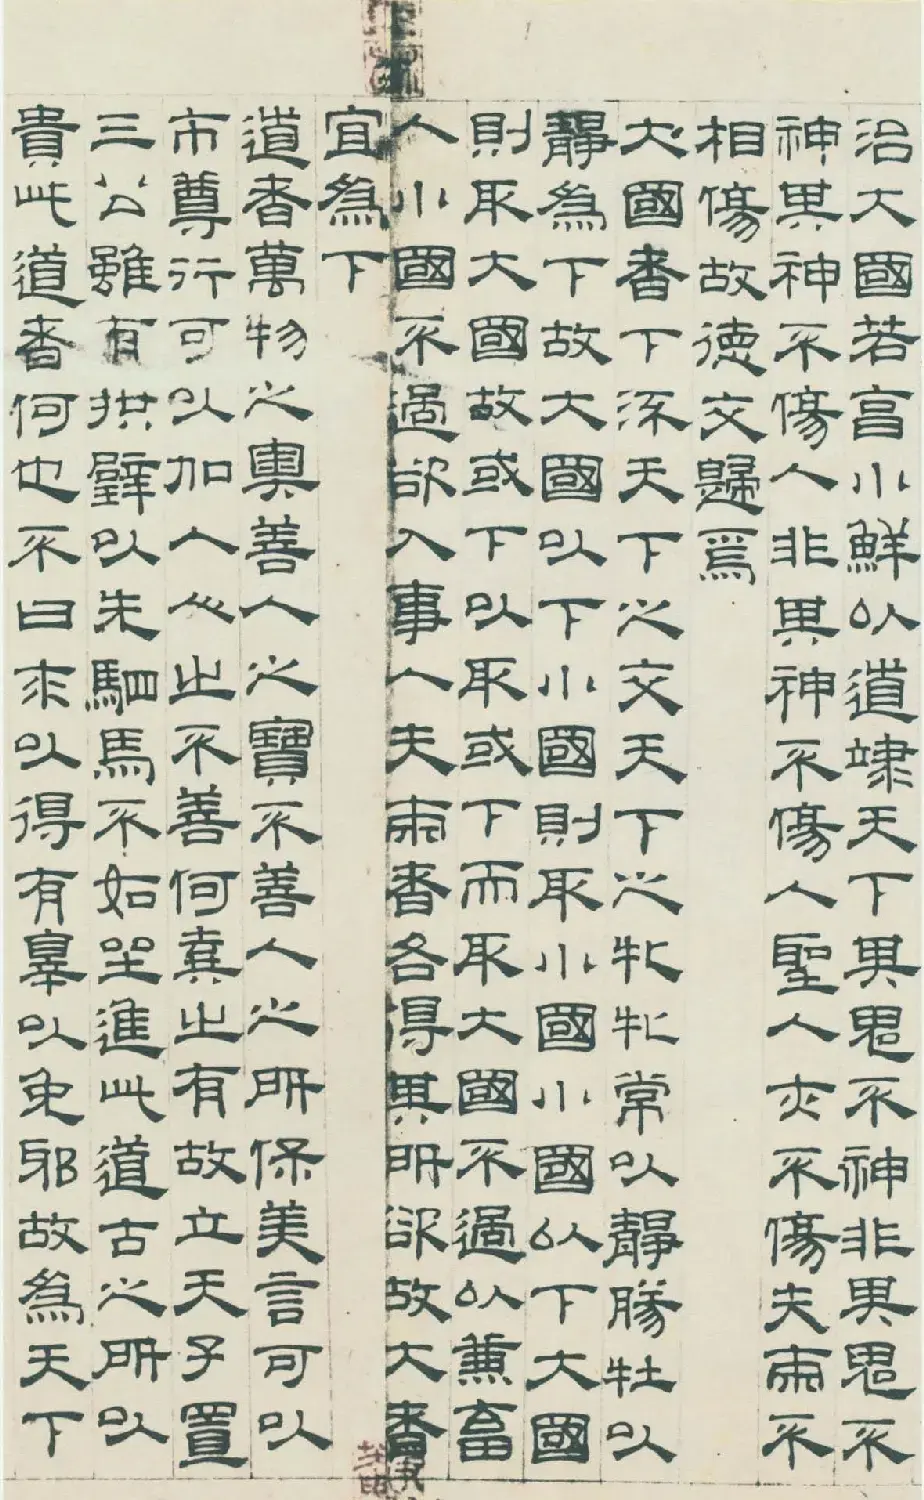 治大國若亯小鮮以道天下其鬼不神非其鬼不
神其神不傷人非其神不傷人聖人亦不傷夫兩不
相傷故徳交歸焉
大國者下流天下之交天下之牝牝常以靜勝牡以
靜為下故大國以下小國則取小國小國以下大國
則取大國故或下以取或下而取大國不過以兼畜
人小國不過欲入事人夫兩者各得其所欲故大者
宜為下
道者萬物之奧善人之寶不善人之所保美言可以
市尊行可以加人人之不善何棄之有故立天子置
三公雖有拱璧以先駟馬不如坐進此道古之所以
貴此道者何也不曰求以得有辠以免邪故為天下